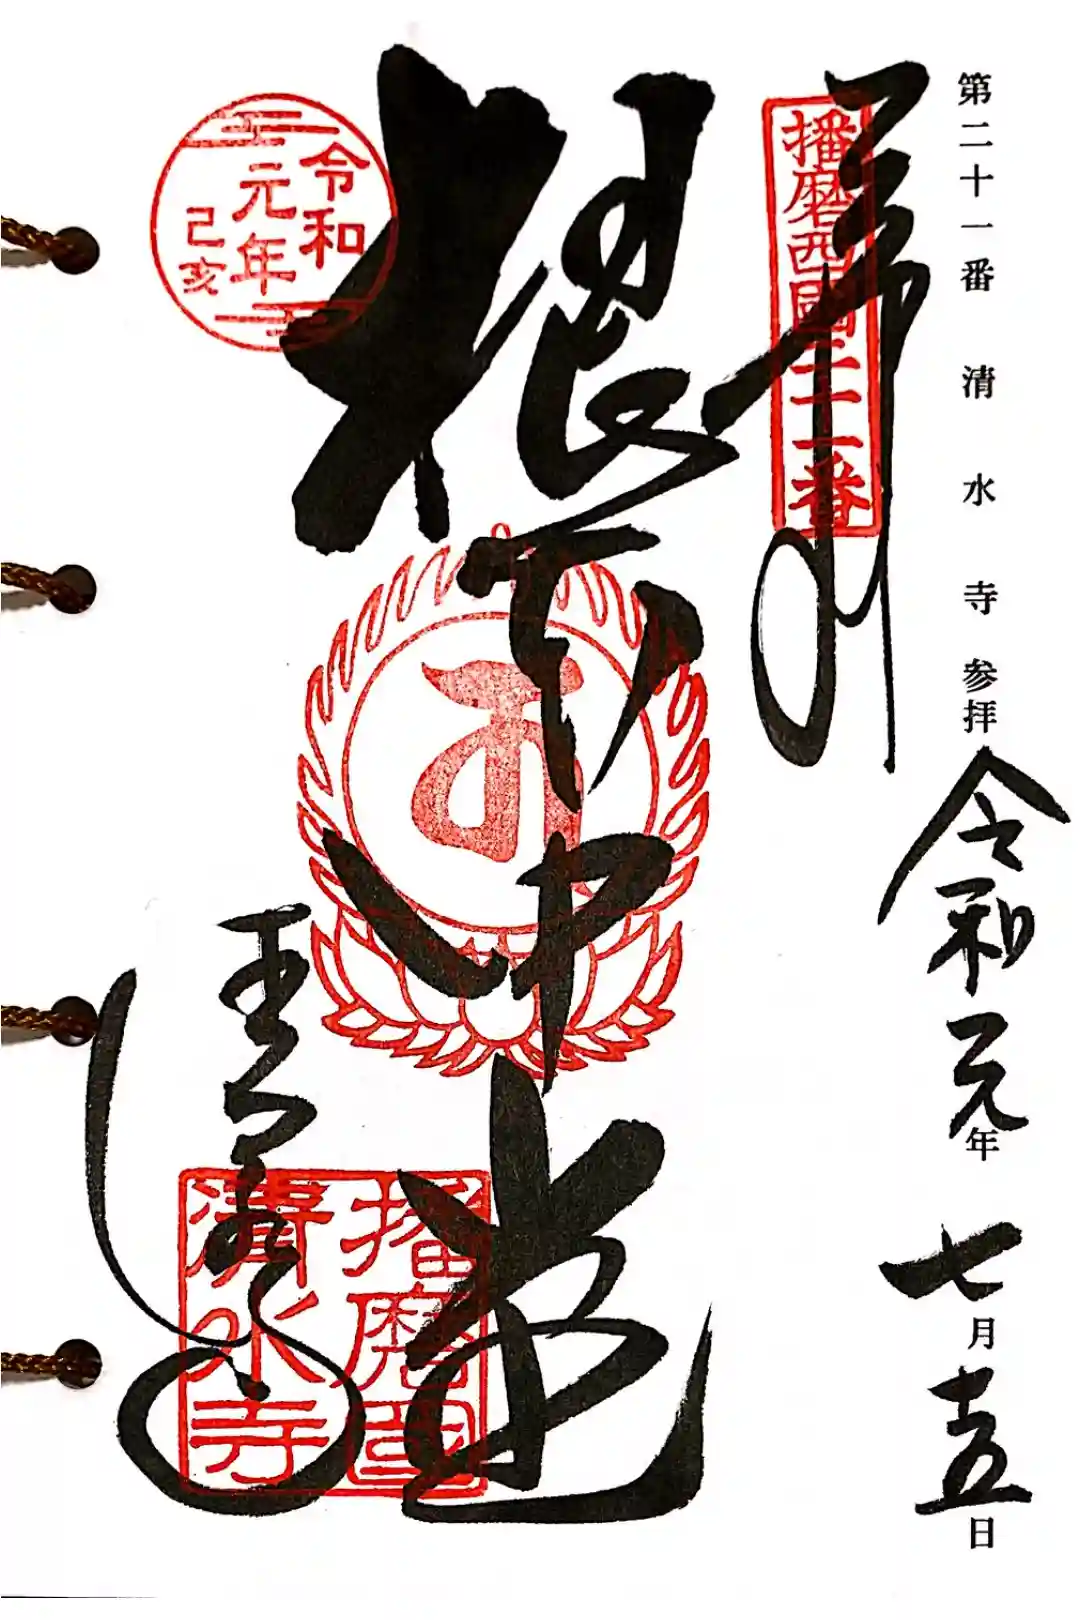 第二十一番 清水寺 参拝
令和元年 七月十五日
奉拝
播磨西國二十一番
根本中堂
清水寺
令和
元年
己亥
播磨国
清水寺